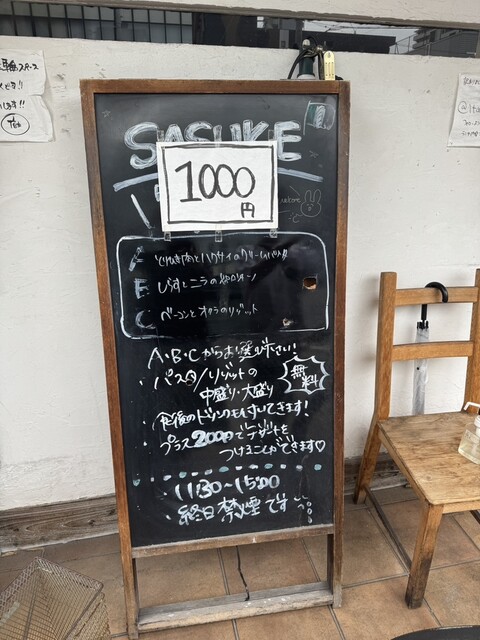 SASUKE
1000
円
A とりひき肉とハクサイのクリームパスタ
B しらすとニラの
C ベーコンとオクラのリゾット
A・B・Cからお選び下さい!
パスタ/リゾットの
中盛り・大盛り
無料
食後のドリンクもついてきます!
プラス200円でデザートを
つけることができます♡
11:30〜15:00
終日禁煙です